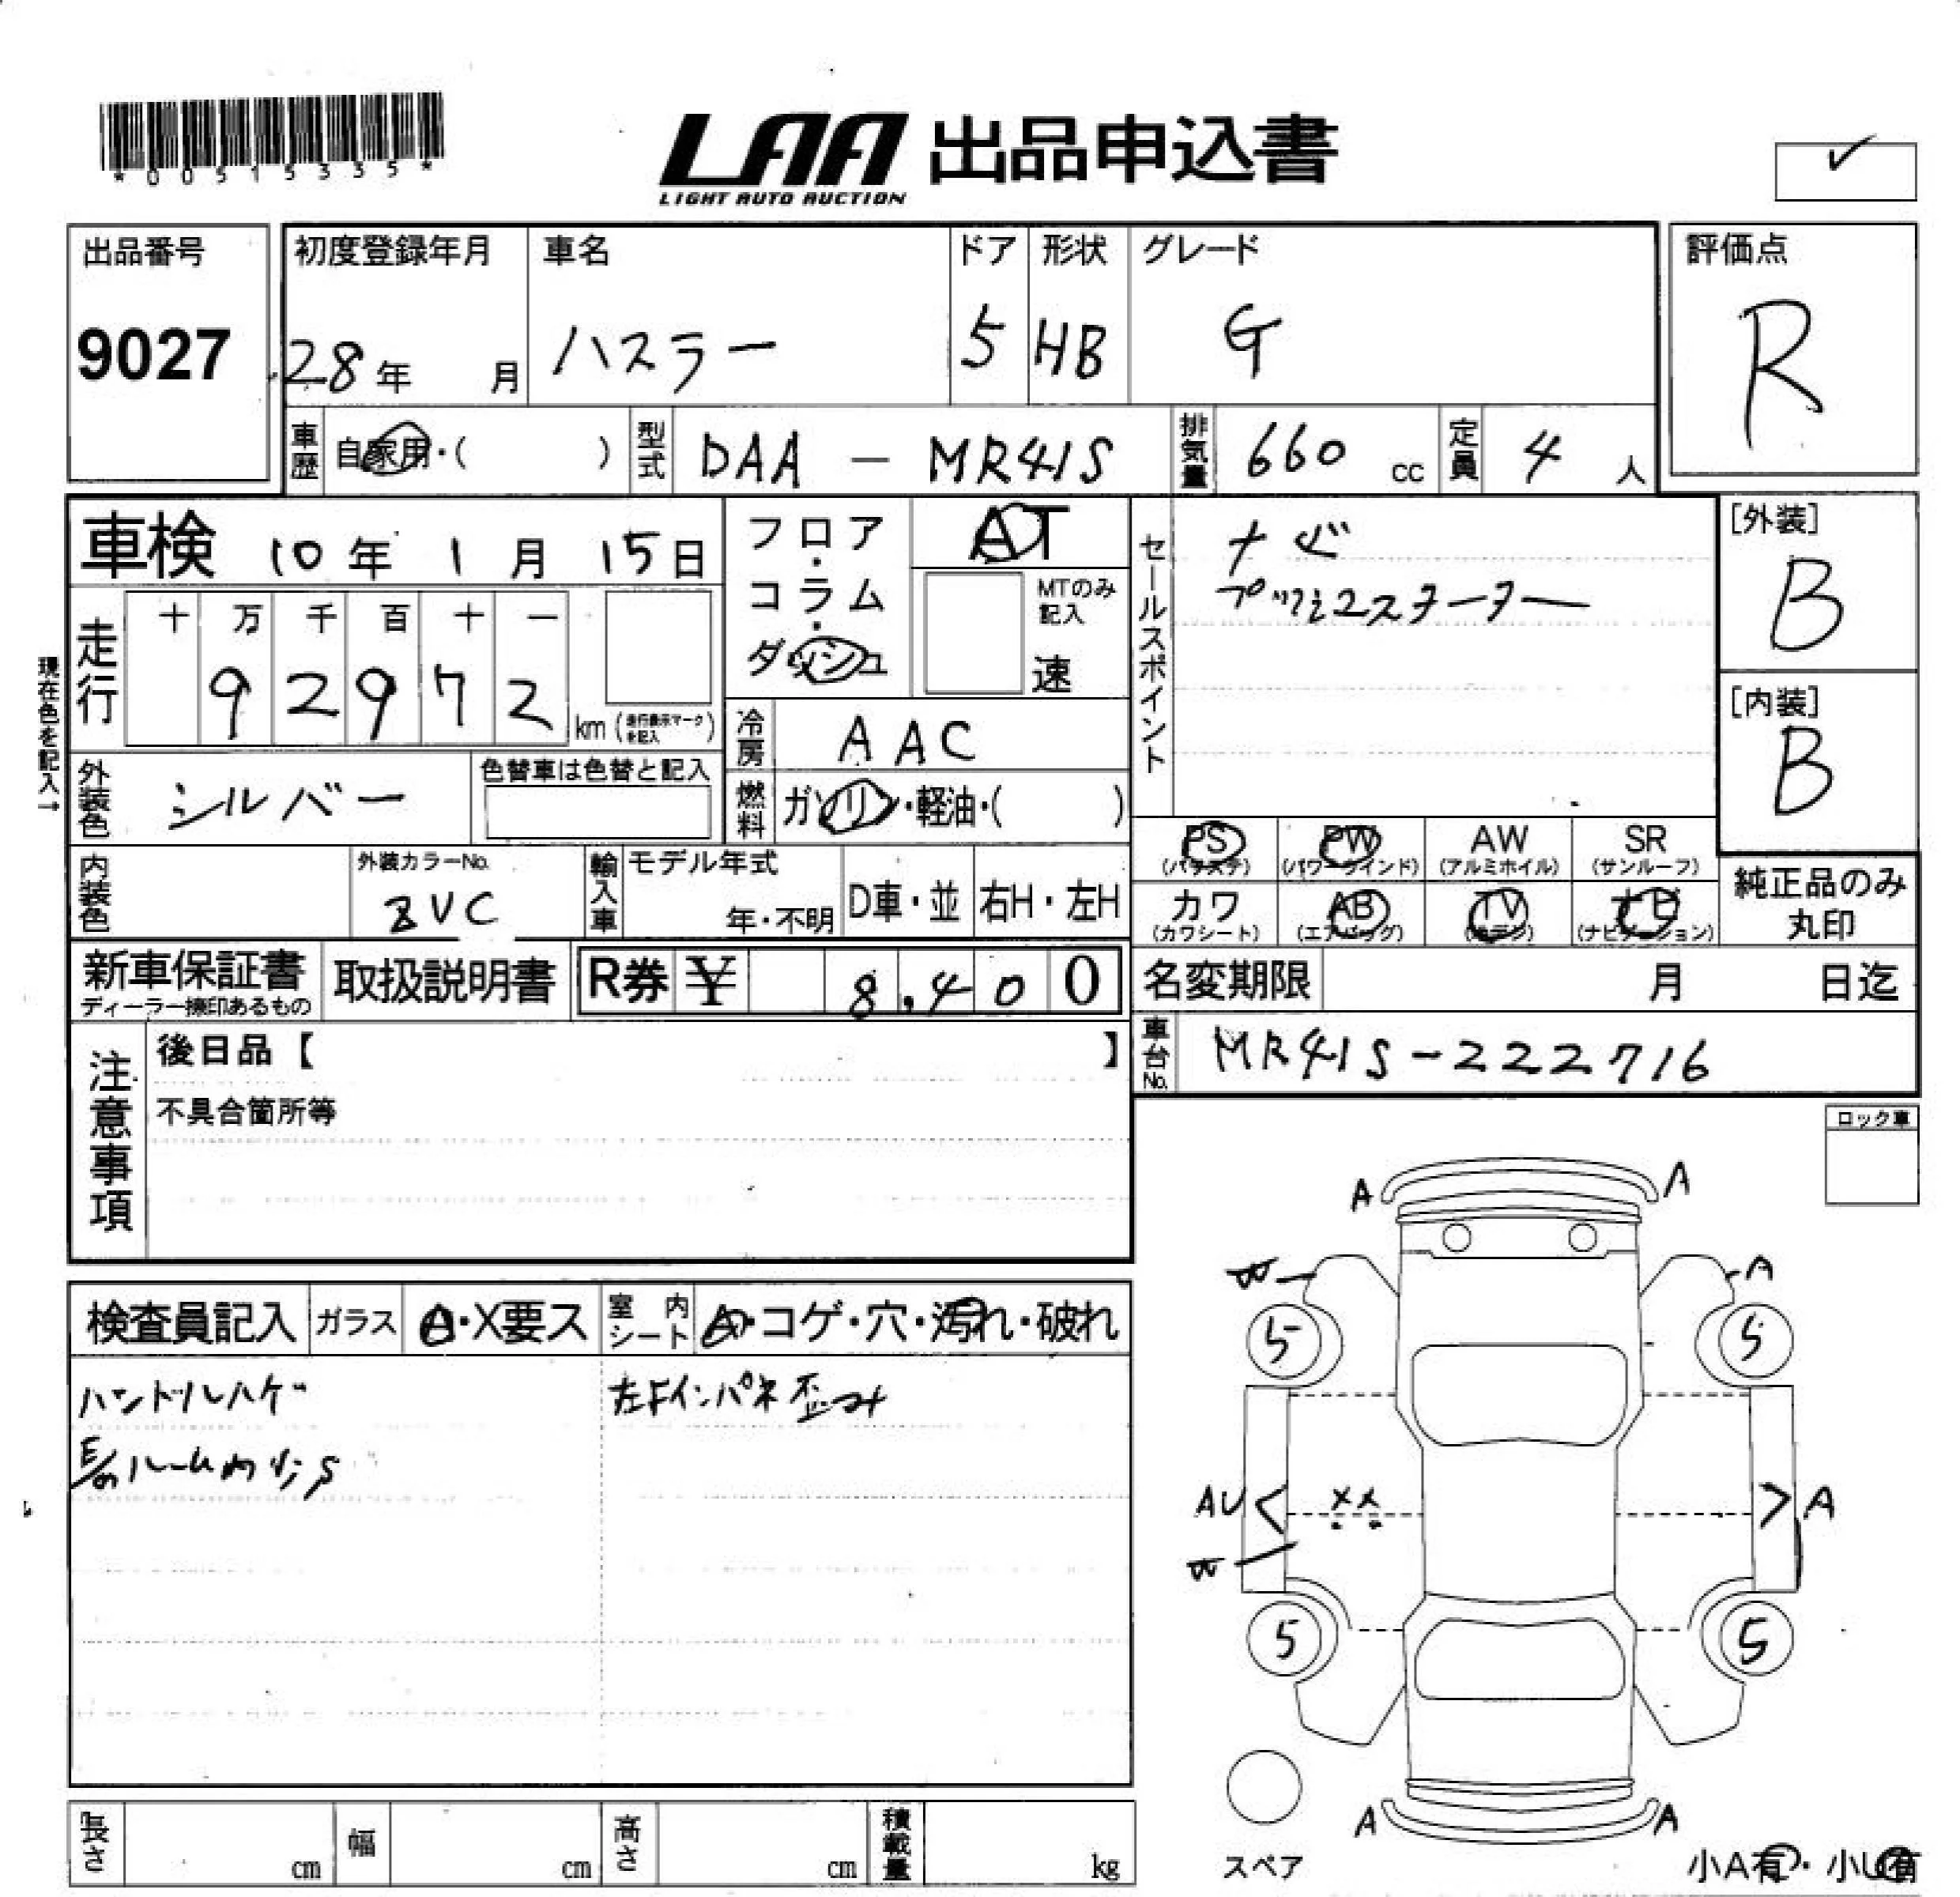 *00515335*
LAA 出品申込書
LIGHT AUTO AUCTION
✓
出品番号 9027
初度登録年月 28年 月
車名 ハスラー
ドア 5
形状 HB
グレード G
評価点 R
車歴 自家用・( )
型式 DAA - MR41S
排気量 660 cc
定員 4 人
車検 10年 1月 15日
フロア・コラム・ダッシュ
AT
MTのみ記入
速
セールスポイント
ナビ
プッシュスターター
[外装] B
[内装] B
現在色を記入→
走行 十 万 千 百 十 一
92972 km (走行表示マークを記入)
冷房 AAC
外装色 シルバー
色替車は色替と記入
燃料 ガソリン・軽油・( )
PS (パワステ)
PW (パワーウインド)
AW (アルミホイル)
SR (サンルーフ)
カワ (カワシート)
AB (エアバッグ)
TV (テレビ)
ナビ (ナビゲーション)
純正品のみ
丸印
内装色
外装カラーNo. ZVC
輸入車 モデル年式 年・不明
D車・並
右H・左H
新車保証書
ディーラー捺印あるもの
取扱説明書
R券 ¥ 8,400
名変期限 月 日迄
車台No. MR41S-222716
注意事項
後日品【 】
不具合箇所等
ロック車
検査員記入
ガラス A・X要ス
室内シート A・コゲ・穴・汚れ・破れ
ハンドルハゲ
左Fインパネ歪み
ルーム内
A A
W A
5 5
AU XX A
W
5 5
A A
スペア
小A有・小U有
長さ cm
幅 cm
高さ cm
積載量 kg